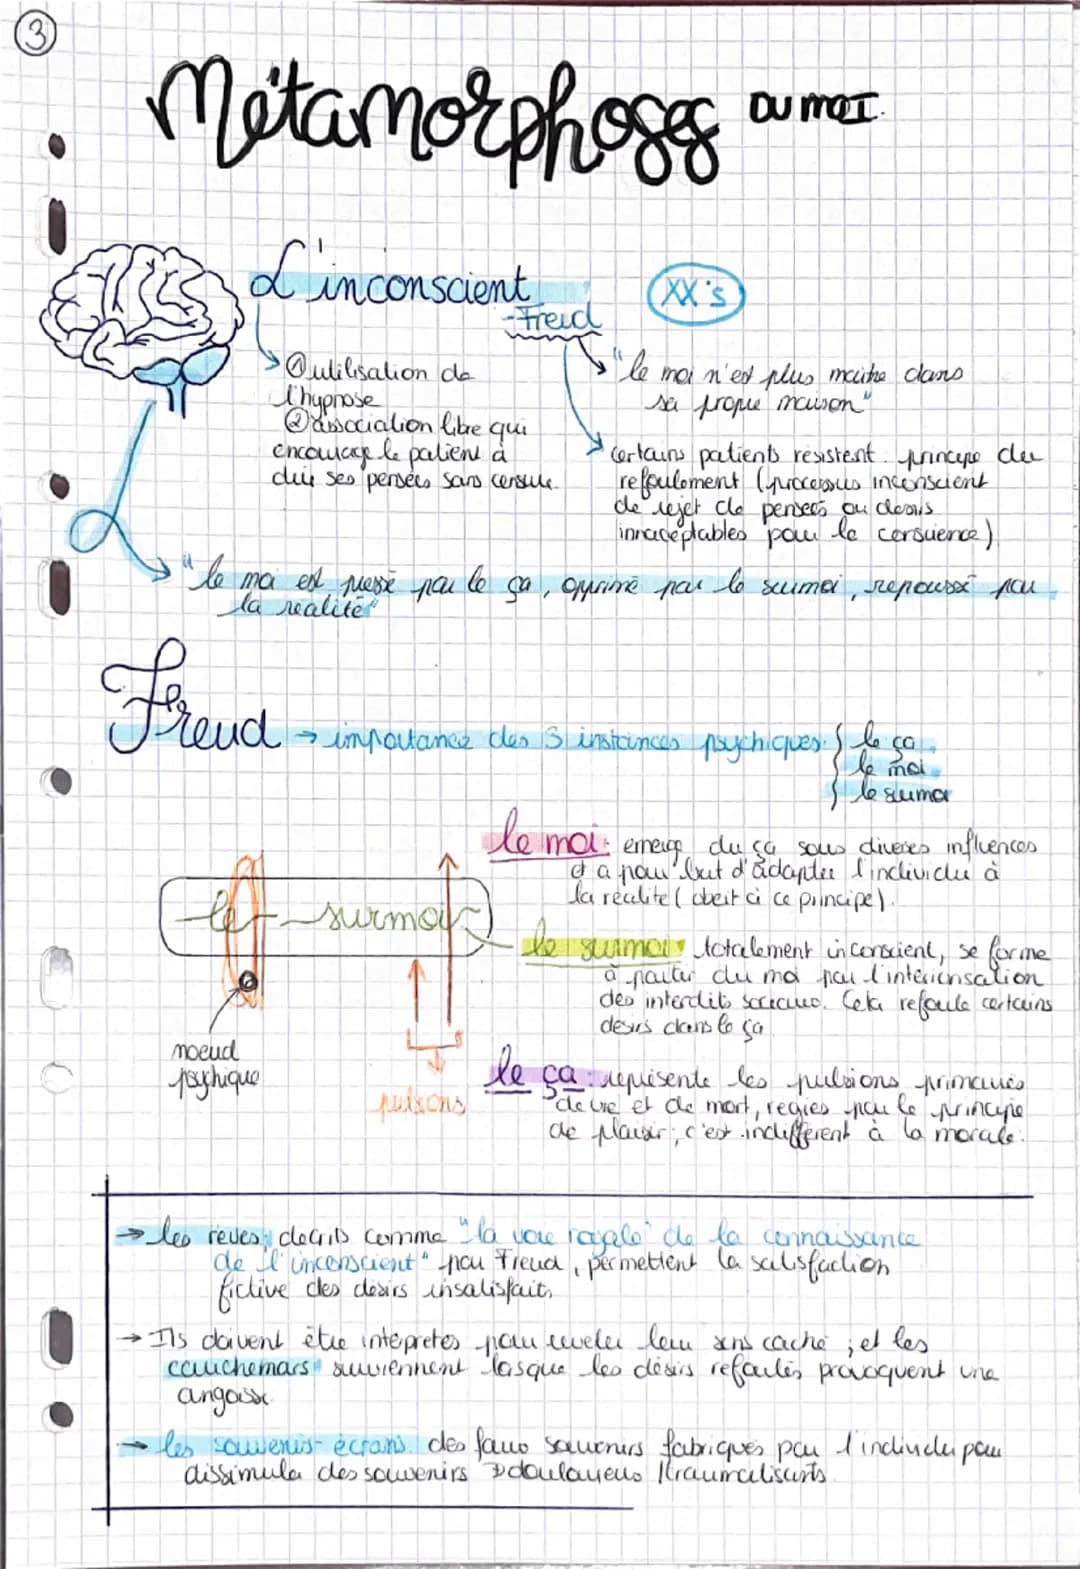 3
Métamorphoses DU MOI.
L'inconscient
XX's
- Freud
① utilisation de
l'hypnose
② association libre qui
encourage le patient à
dire ses pensées sans censure.
"le moi n'est plus maître dans
sa propre maison"
certains patients résistent : principe du
refoulement (processus inconscient
de rejet de pensées ou désirs
innaceptables pour la conscience)
"le moi est pressé par le ça, opprimé par le surmoi, repoussé par
la réalité"
Freud → importance des 3 instances psychiques : { le ça
le moi
le surmoi
le moi : émerge du ça sous diverses influences
et a pour but d'adapter l'individu à
la réalité (obeit à ce principe).
le surmoi
le surmoi : totalement inconscient, se forme
à partir du moi par l'intériorisation
des interdits sociaux. Cela refoule certains
désirs dans le ça
noeud
psychique
pulsions
le ça : représente les pulsions primaires
de vie et de mort, régies par le principe
de plaisir ; c'est indifférent à la morale.
→ les rêves, décrits comme "la voie royale de la connaissance
de l'inconscient" par Freud, permettent la satisfaction
fictive des désirs insatisfaits
→ Ils doivent être interpretés pour reveler leur sens caché ; et les
cauchemars surviennent lorsque les désirs refoulés provoquent une
angoisse.
→ les souvenirs-écrans : des faux souvenirs fabriqués par l'individu pour
dissimuler des souvenirs douloureux / traumatisants.